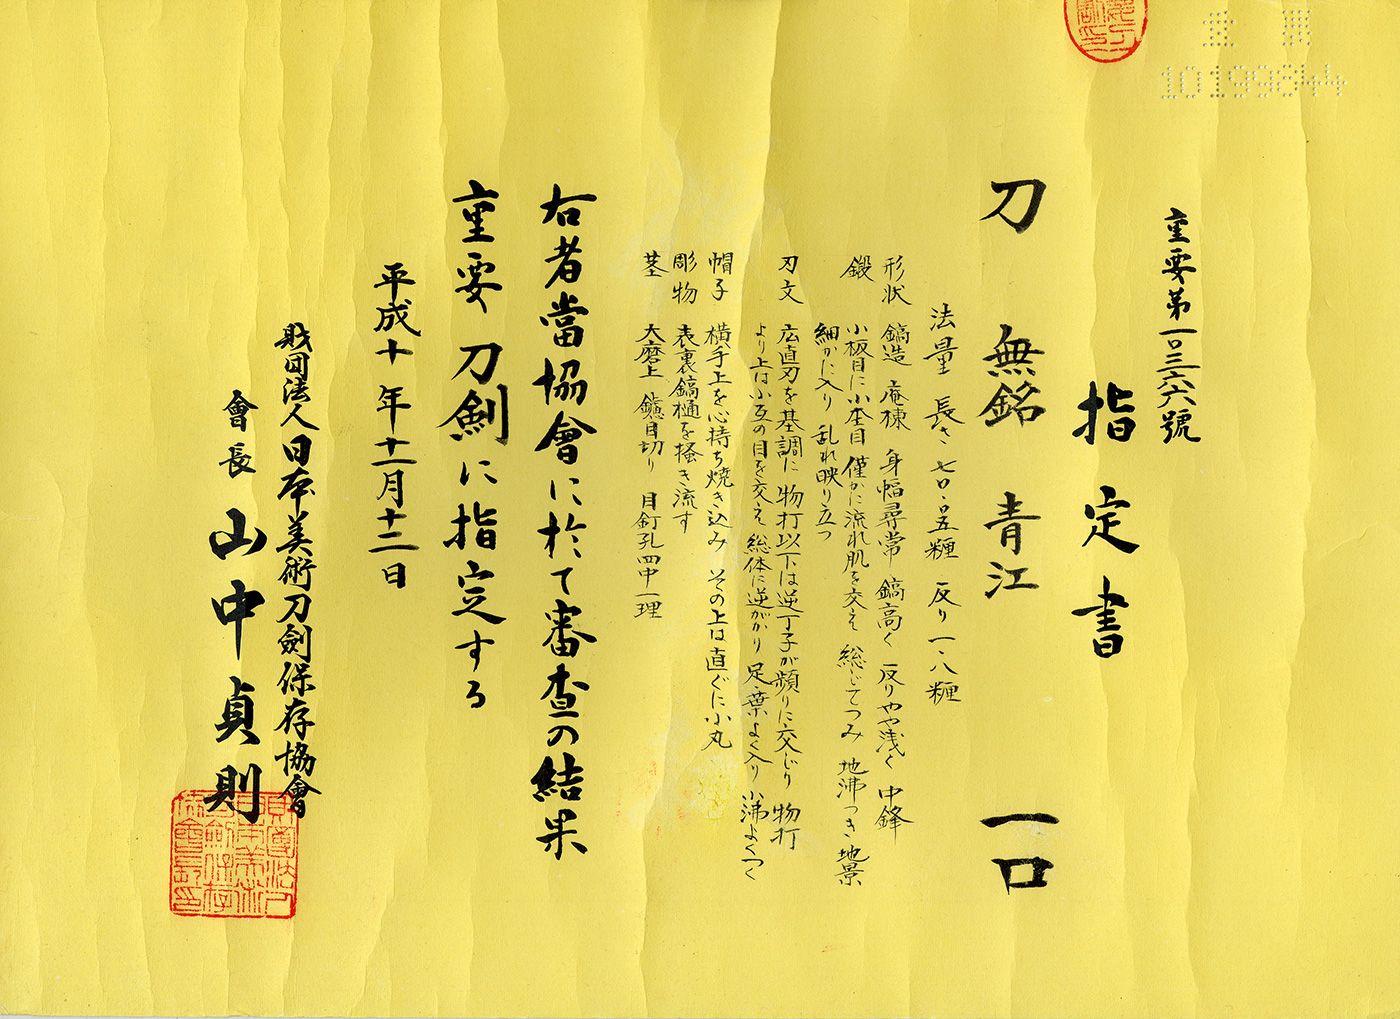 重要第一〇三六六號
指定書
刀 無銘 青江 一口
法量 長さ 七〇・五糎 反り 一・八糎
形状 鎬造 庵棟 身幅尋常 鎬高く 反りやや浅く 中鋒
鍛 小板目に小杢目 僅かに流れ肌を交え 総じてつみ 地沸つき 地景
細かに入り 乱れ映り立つ
刃文 広直刃を基調に 物打以下は逆丁子が頻りに交じり 物打
より上は小互の目を交え 総体に逆がかり 足葉よく入り 小沸よくつく
帽子 横手上を心持ち焼き込み その上は直ぐに小丸
彫物 表裏鎬樋を掻き流す
茎 大磨上 鑢目切り 目釘孔四中一埋
右者當協會に於て審査の結果
重要刀剣に指定する
平成十年十一月十二日
財団法人日本美術刀劍保存協會
會長 山中貞則
10199844